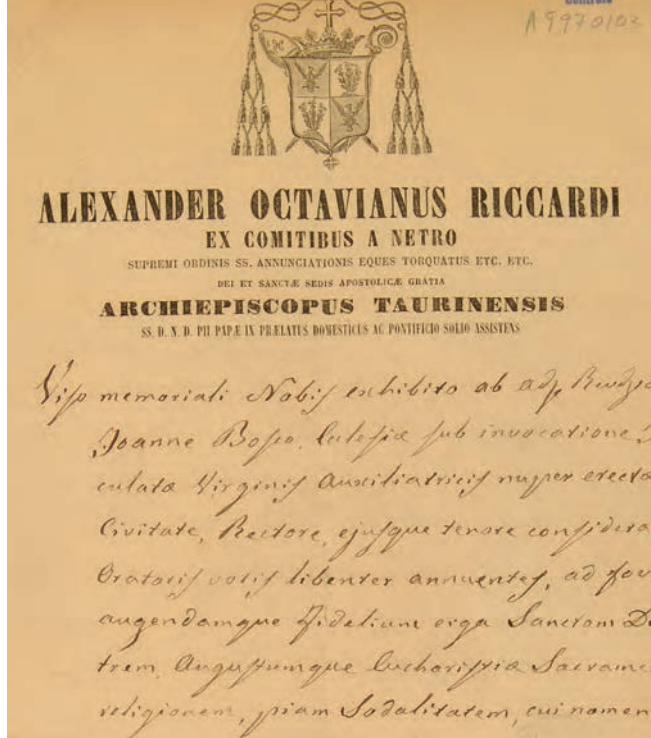 A 9970103
ALEXANDER OCTAVIANUS RICCARDI
EX COMITIBUS A NETRO
SUPREMI ORDINIS SS. ANNUNCIATIONIS EQUES TORQUATUS ETC. ETC.
DEI ET SANCTÆ SEDIS APOSTOLICÆ GRATIA
ARCHIEPISCOPUS TAURINENSIS
SS. D. N. D. PII PAPÆ IX PRÆLATUS DOMESTICUS AC PONTIFICIO SOLIO ASSISTENS
Viso memoriali Nobis exhibito ab
Joanne Bosco, Eclesiæ sub invocatione
culatæ Virginis Auxiliatricis nuper erectæ
Civitate, Rectore, ejusque tenore considera
Oratoris votis libenter annuentes, ad fov
augendamque Fidelium erga Sanctam D
trem, Augustumque Eucharistiæ Sacrame
religionem, piam Sodalitatem, cui nomen